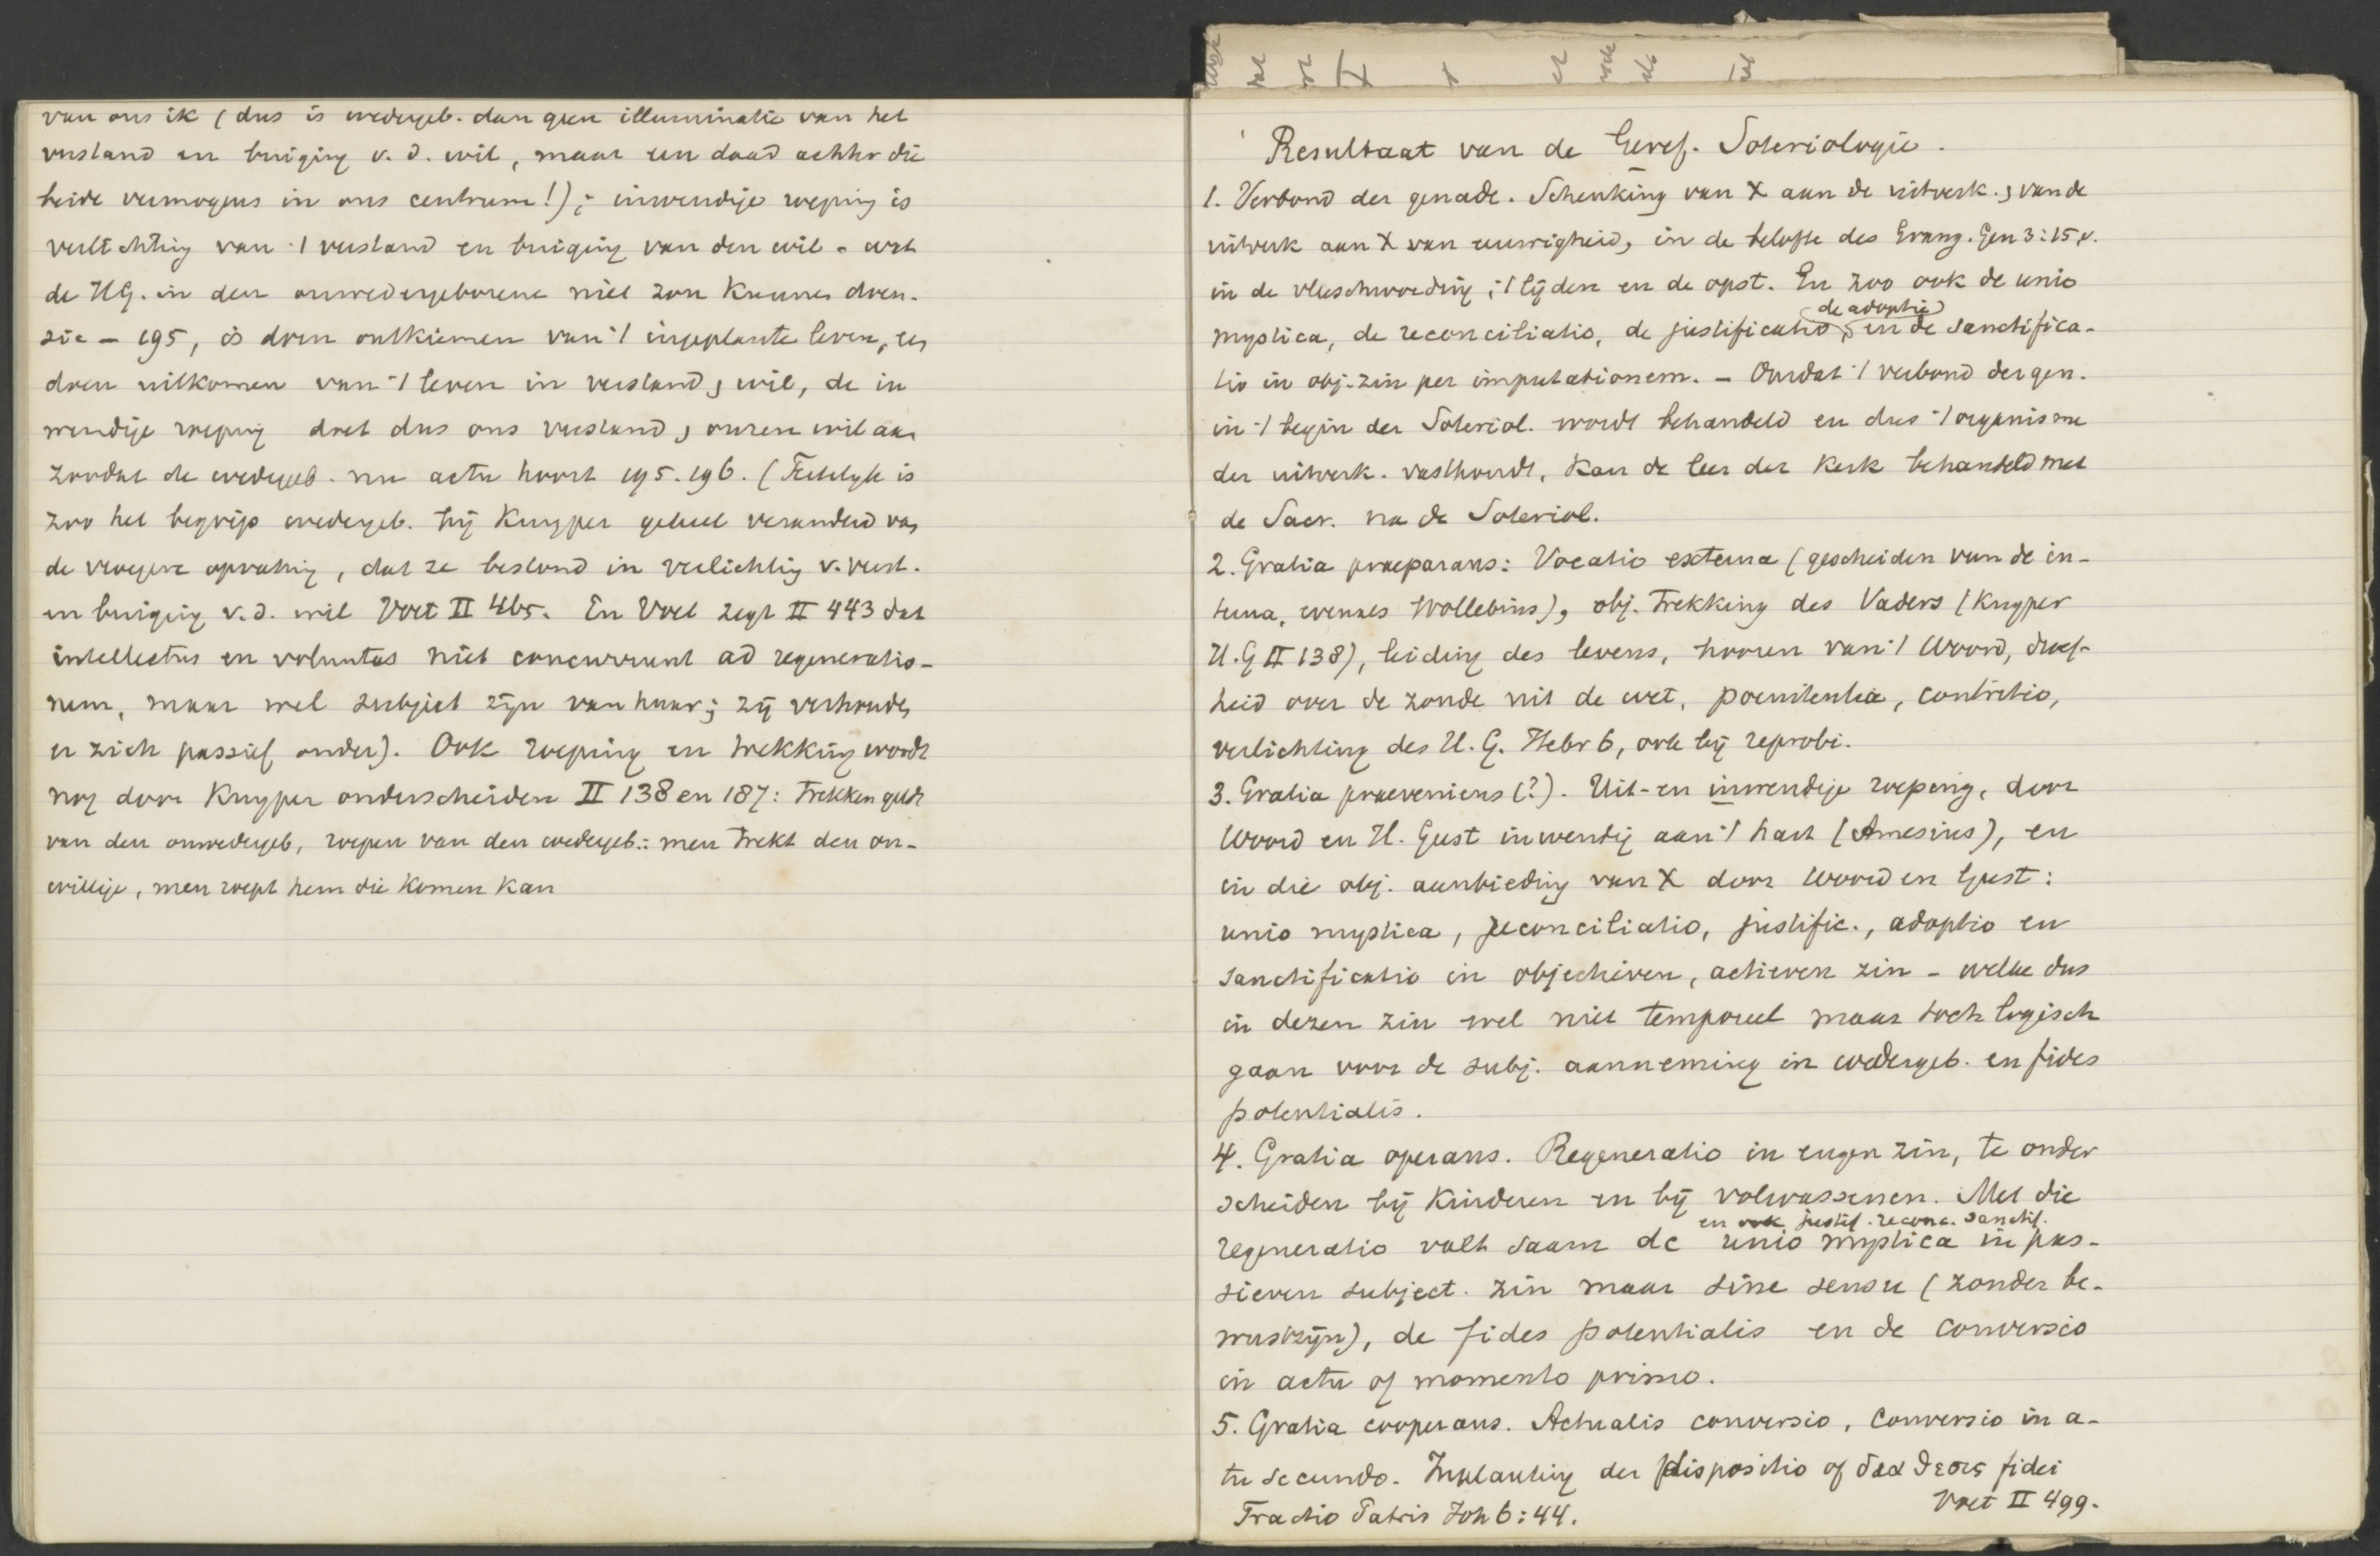 van ons ik (dus is wedergeb. dan geen illuminatie van het
verstand en buiging v. d. wil, maar een daad achter die
beide vermogens in ons centrum!); inwendige roeping is
verlichting van 't verstand en buiging van den wil - wat
de HG. in den onwedergeborene niet zou kunnen doen.
zie - 195, is doen ontkiemen van 't ingeplante leven, en
doen uitkomen van 't leven in verstand, wil, de in
wendige roeping doet dus ons verstand, onzen wil aan
zoodat de wedergeb. nu actu hoort 195. 196. (Feitelijk is
zoo het begrip wedergeb. bij Kuyper geheel veranderd van
de vroegere opvatting, dat ze bestond in verlichting v. verst.
en buiging v. d. wil Voet II 465. En Voet zegt II 443 dat
intellectus en voluntas niet concurrunt ad regeneratio-
nem, maar wel subject zijn van haar; zij verhouden
er zich passief onder). Ook roeping en trekking wordt
nog door Kuyper onderscheiden II 138 en 187: trekken geldt
van den onwedergeb, roepen van den wedergeb.: men trekt den on-
willige, men roept hem die komen kan
Resultaat van de Geref. Soteriologie.
1. Verbond der genade. Schenking van X aan de uitverk., van de
uitverk aan X van eeuwigheid, in de belofte des Evang. Gen 3:15 v.
in de vleeschwording, 't lijden en de opst. En zoo ook de unio
de adoptio
mystica, de reconciliatio, de justificatio, en de sanctifica-
tio in obj. zin per imputationem. - Omdat 't verbond der gen.
in 't begin der Soteriol. wordt behandeld en dus 't organisme
der uitverk. vasthoudt, kan de leer der Kerk behandeld met
de Sacr. na de Soteriol.
2. Gratia praeparans: Vocatio externa (gescheiden van de in-
terna, evenzes Wollebius), obj. trekking des Vaders (Kuyper
H. G II 138), leiding des levens, hooren van 't Woord, droef-
heid over de zonde uit de wet, poenitentia, contritio,
verlichting des H. G. Hebr 6, ook bij reprobi.
3. Gratia praeveniens (?). Uit- en inwendige roeping, door
Woord en H. Geest inwendig aan 't hart (Amesius), en
in die obj. aanbieding van X door Woord en Geest:
unio mystica, reconciliatio, justific., adoptio en
sanctificatio in objectieven, actieven zin - welke dus
in dezen zin wel niet temporeel maar toch logisch
gaan voor de subj. aanneming in wedergeb. en fides
potentialis.
4. Gratia operans. Regeneratio in engen zin, te onder
scheiden bij kinderen en bij volwassenen. Met die
en ook justif. reconc. sanctif.
regeneratio valt saam de unio mystica in pas-
sieven subject. zin maar sine sensu (zonder be-
wustzijn), de fides potentialis en de conversio
in actu of momento primo.
5. Gratia cooperans. Actualis conversio, conversio in a-
tu secundo. Inplanting der dispositio of διαθεσις fidei
Voet II 499.
Tractio Patris Joh 6:44.